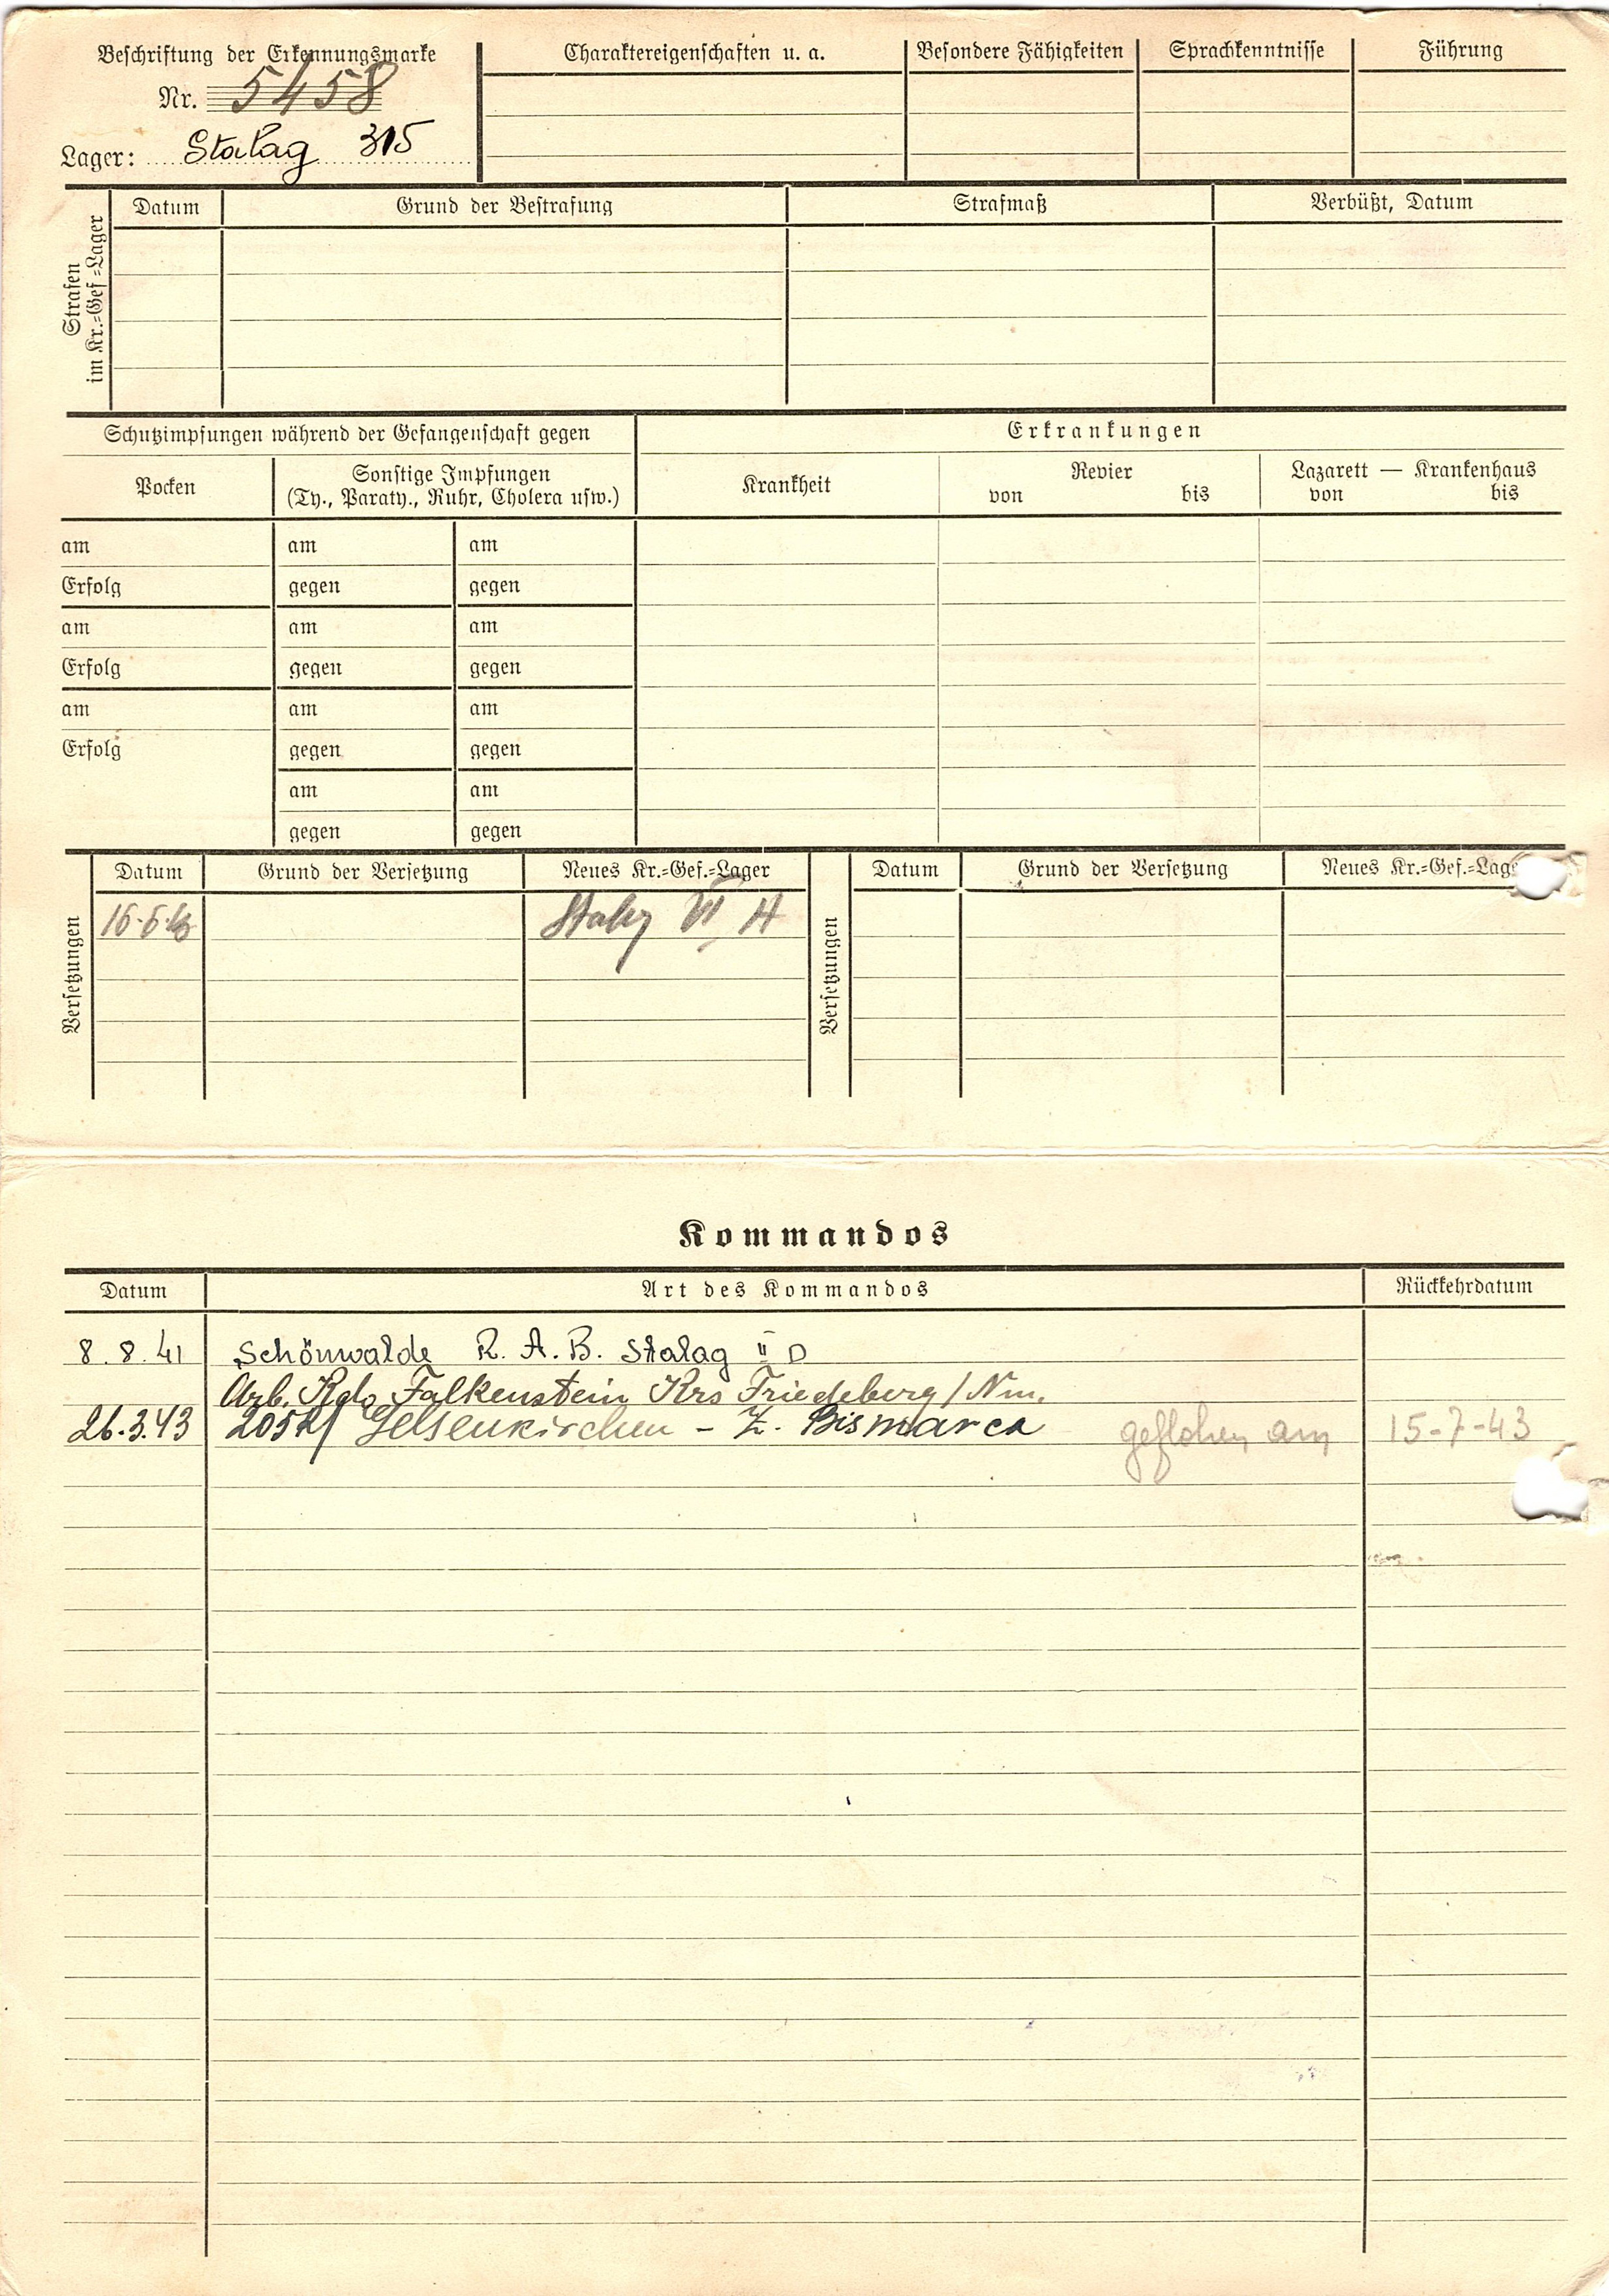 Beschriftung der Erkennungsmarke
Nr. 5458
Lager: Stalag 315
Charaktereigenschaften u. a.
Besondere Fähigkeiten
Sprachkenntnisse
Führung
Strafen
im Kr.=Gef=Lager
Datum
Grund der Bestrafung
Strafmaß
Verbüßt, Datum
Schutzimpfungen während der Gefangenschaft gegen
Erkrankungen
Pocken
Sonstige Impfungen
(Ty., Paraty., Ruhr, Cholera usw.)
Krankheit
Revier
von bis
Lazarett — Krankenhaus
von bis
am am am
Erfolg gegen gegen
am am am
Erfolg gegen gegen
am am am
Erfolg gegen gegen
am am
gegen gegen
Versetzungen
Datum Grund der Versetzung Neues Kr.=Gef.=Lager
Stalag VI A
Versetzungen
Datum Grund der Versetzung Neues Kr.=Gef.=Lag
Kommandos
Datum Art des Kommandos Rückkehrdatum
8. 8. 41 Schönwalde R. A. B. Stalag II D
Arb. Kdo Falkenstein Krs Friedeberg/Nm.
26.3.43 205R/ Gelsenkirchen - Z. Bismarck geflohen am 15-7-43